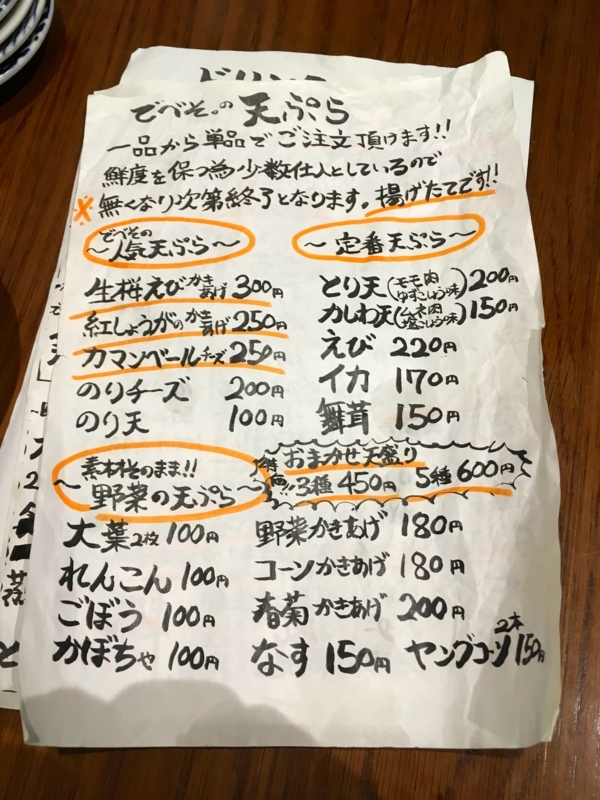 ドリンク
でべそ。の 天ぷら
一品から単品でご注文頂けます!!
鮮度を保つ為少数仕入としているので
※無くなり次第終了となります。揚げたてです!!
でべその
〜人気天ぷら〜
生桜えびかきあげ 300円
紅しょうがのかきあげ 250円
カマンベールチーズ 250円
のりチーズ 200円
のり天 100円
〜定番天ぷら〜
とり天(モモ肉ゆずこしょう味) 200円
かしわ天(ムネ肉塩こしょう味) 150円
えび 220円
イカ 170円
舞茸 150円
おまかせ天盛り
3種 450円 5種 600円
素材そのまま!!
〜野菜の天ぷら〜
大葉2枚 100円
れんこん 100円
ごぼう 100円
かぼちゃ 100円
野菜かきあげ 180円
コーンかきあげ 180円
春菊かきあげ 200円
なす 150円 ヤングコーン2本 150円